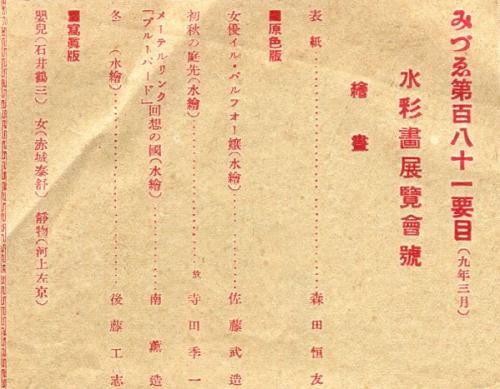 みづゑ第百八十一要目(九年三月)
水彩畫展覽會號
繪畫
表紙……森田恒友
■原色版
女優イル・バルフオー孃(水繪)……佐藤武造
初秋の庭先(水繪)……故 寺田季一
メーテルリンク「ブルーバード」回想の國(水繪)……南薰造
冬(水繪)……後藤工志
■寫眞版
嬰兒(石井鶴三) 女(赤城泰舒) 靜物(河上左京)